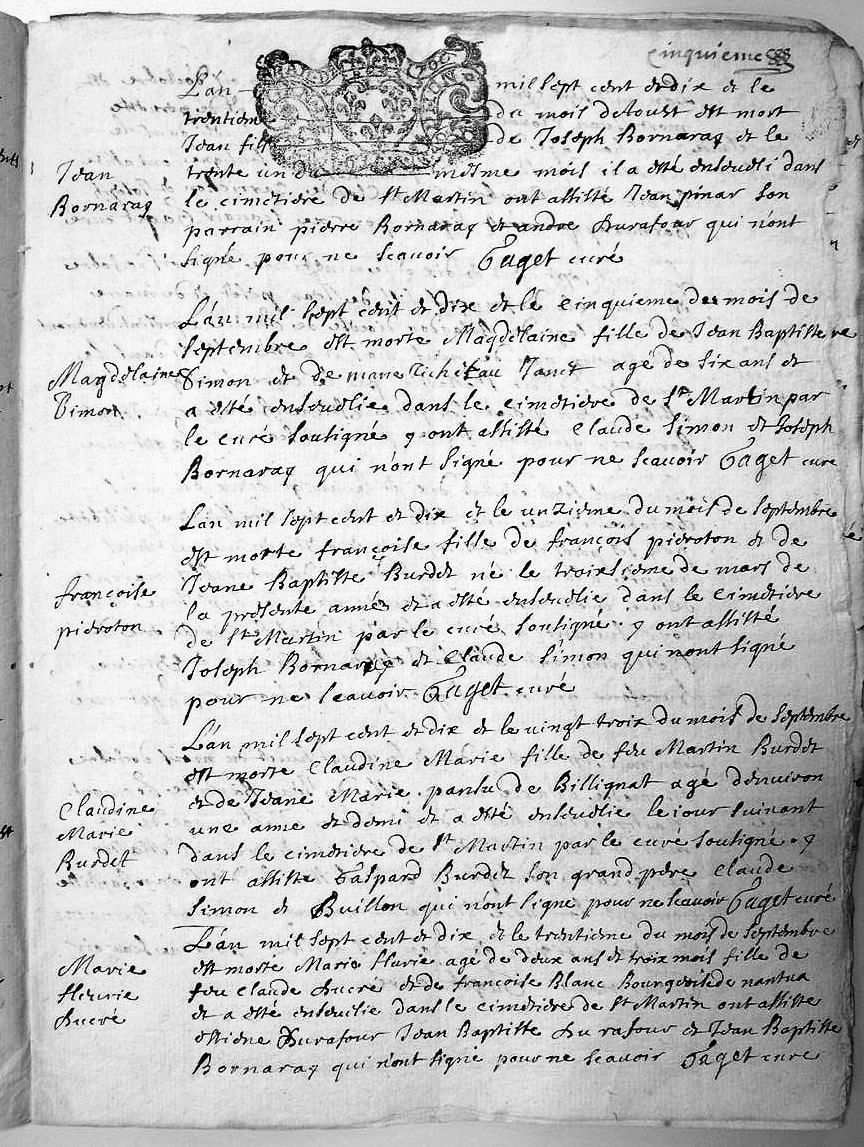 cinquieme
L'an mil sept cent et dix et le
trentieme du mois daoust est mort
Jean fils de Joseph Bornaraq et le
Jean
Bornaraq
trente un du mesme mois il a esté enseveli dans
le cimetiere de St Martin ont assisté Jean pinar son
parrain pierre Bornaraq et andre Durafour qui n'ont
signé pour ne scavoir Gaget curé
L'an mil sept cent et dix et le cinquieme du mois de
septembre est morte Magdelaine fille de Jean Baptiste
Magdelaine
Simon
Simon et de marie agé de six ans et
a esté ensevelie dans le cimetiere de St Martin par
le curé sousigné y ont assisté Claude Simon et Joseph
Bornaraq qui n'ont signé pour ne scavoir Gaget curé
L'an mil sept cent et dix et le unzieme du mois de septembre
est morte françoise fille de françois pieroton et de
françoise
pieroton
Jeane Baptiste Burdet né le troisieme de mars de
la presente année et a esté ensevelie dans le cimetiere
de St Martin par le curé sousigné y ont assisté
Joseph Bornaraq et Claude Simon qui n'ont signé
pour ne scavoir Gaget curé
L'an mil sept cent et dix et le vingt troix du mois de septembre
est morte Claudine Marie fille de feu Martin Burdet
Claudine
Marie
Burdet
et de Jeane Marie pansu de Billignat agé denviron
une anne et demi et a esté ensevelie le jour suivant
dans le cimetiere de St Martin par le curé soutigné y
ont assiste Gaspard Burdet son grand pere Claude
Simon et Buillon qui n'ont signe pour ne scavoir Gaget curé
L'an mil sept cent et dix et le trentieme du mois de septembre
Marie
fleurie
Ducré
est morte Marie flurie agé de deux ans et troix mois fille de
feu Claude Ducré et de françoise Blanc Bourgeois de nantua
et a esté ensevelie dans le cimetiere de St Martin ont assiste
estiene Durafour Jean Baptiste Durafour et Jean Baptiste
Bornaraq qui n'ont signe pour ne scavoir Gaget curé